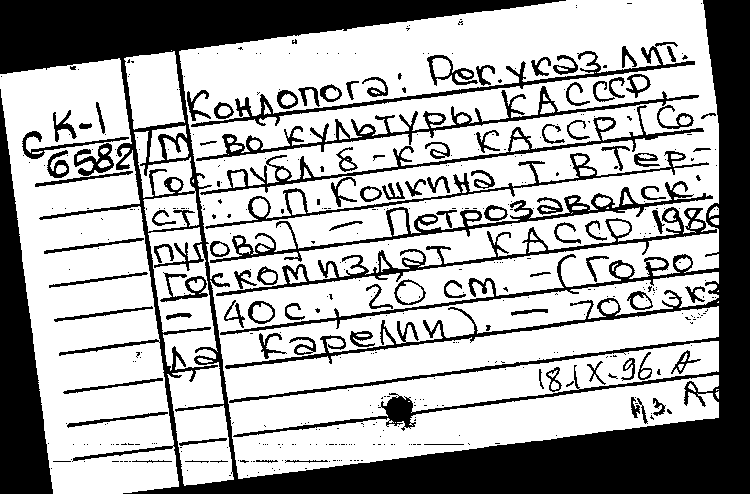 Кондопога: Рек. указ. лит.
К-1
С 6582
/М-во культуры КАСССР,
Гос. публ. б-ка КАССР; [Со-
ст.: О.П. Кошкина, Т.В Тер-
пугова]. — Петрозаводск:
Госкомиздат КАССР, 1986
— 40 с.; 20 см. - (Горо-
да Карелии). — 700 экз
18.IX-96. А